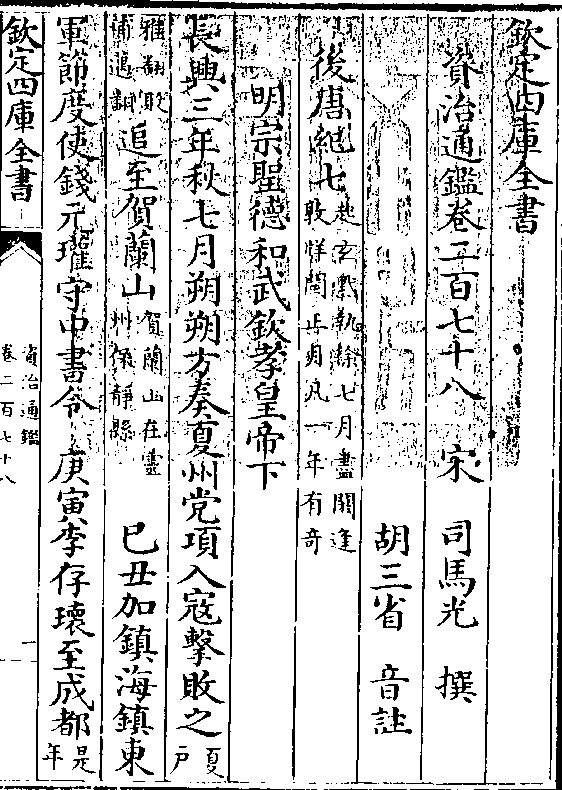 欽定四庫全書
資治通鑑卷二百七十八 宋 司馬光 撰
胡三省 音註
後唐紀七起玄黓執徐七月盡閼逢
敦牂閏正月凡一年有奇
明宗聖德和武欽孝皇帝下
長興三年秋七月朔朔方奏夏州党項入寇擊敗之夏戸
雅翻敗
補邁翻追至賀蘭山賀蘭山在靈
州保靜縣 己丑加鎮海鎮東
軍節度使錢元瓘守中書令 庚寅李存瓌至成都是年
欽定四庫全書
資治通鑑
卷二百七十八
一